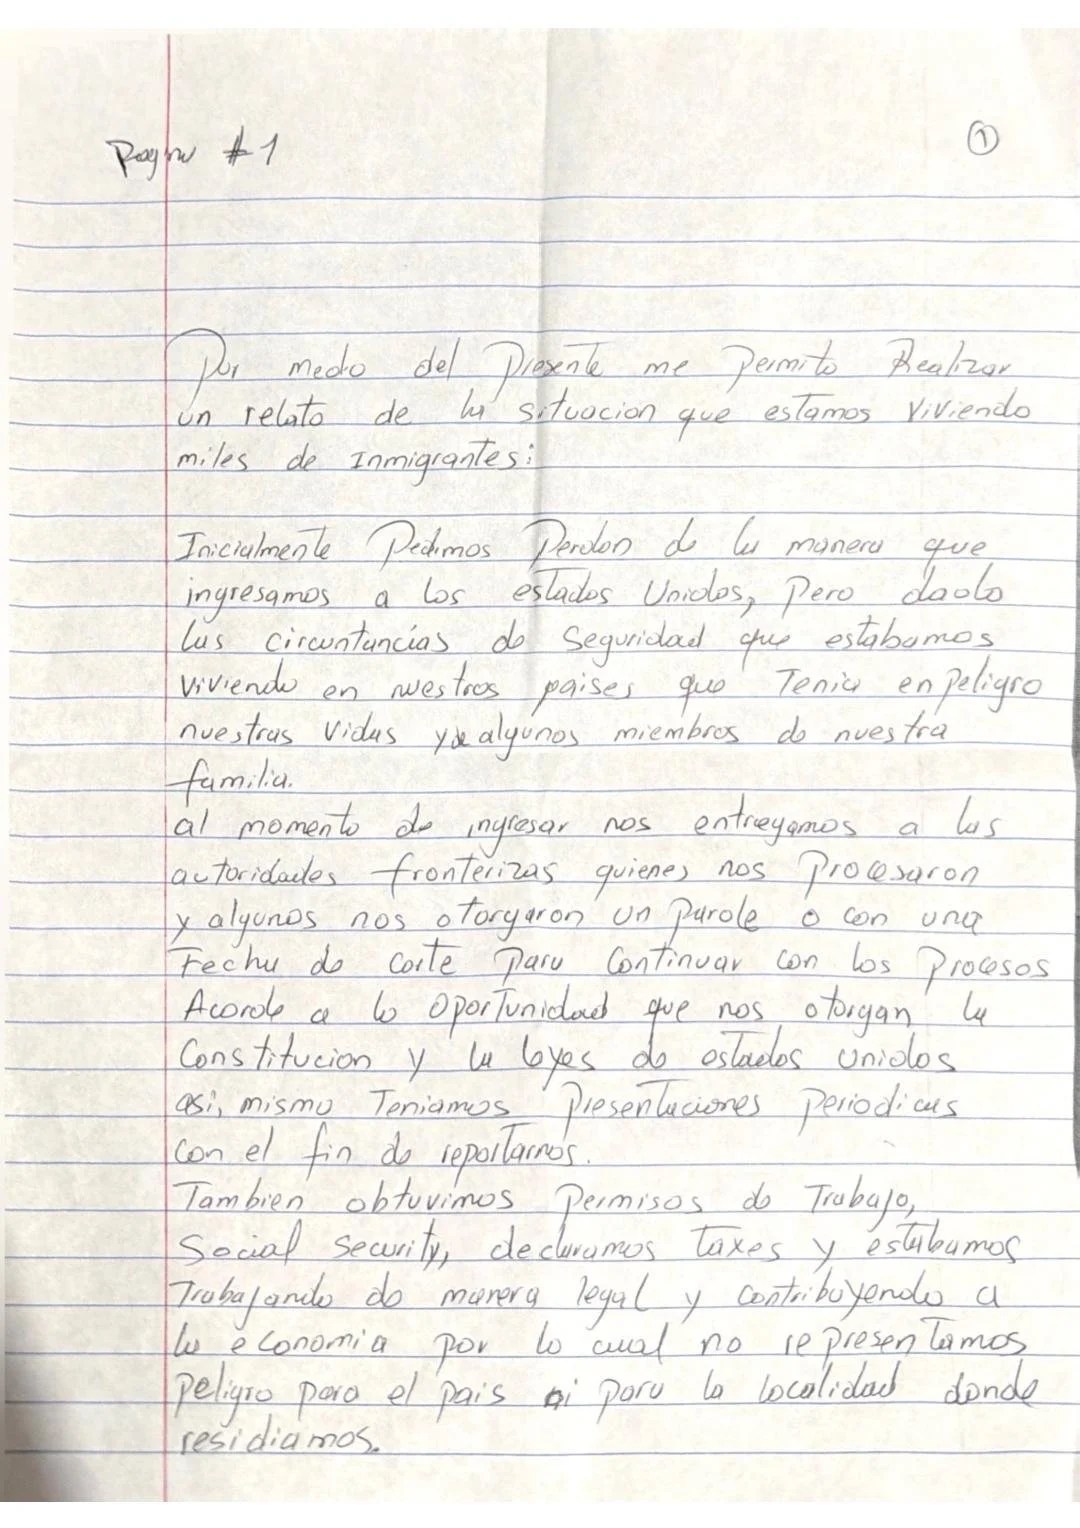 Pagina #1
1
Por medio del Presente me Permito Realizar
un relato de la situacion que estamos Viviendo
miles de Inmigrantes:
Inicialmente Pedimos Perdon de la manera que
ingresamos a los estados Unidos, Pero dado
las circuntancias de Seguridad que estabamos
Viviendo en nuestros paises que Tenia en peligro
nuestras Vidas y de algunos miembros de nuestra
familia.
al momento de ingresar nos entregamos a las
autoridades fronterizas quienes nos Procesaron
y algunos nos otorgaron un parole o con una
Fecha de Corte Para Continuar con los Procesos
Acorde a lo OporTunidad que nos otorgan la
Constitucion y la leyes de estados unidos
asi, mismo Teniamos Presentaciones Periodicas
con el fin de reportarnos.
Tambien obtuvimos Permisos de Trabajo,
Social Security, declaramos Taxes y estabamos
Trabajando de manera legal y Contribuyendo a
la economia por lo cual no representamos
peligro para el pais ni para la localidad donde
residiamos.